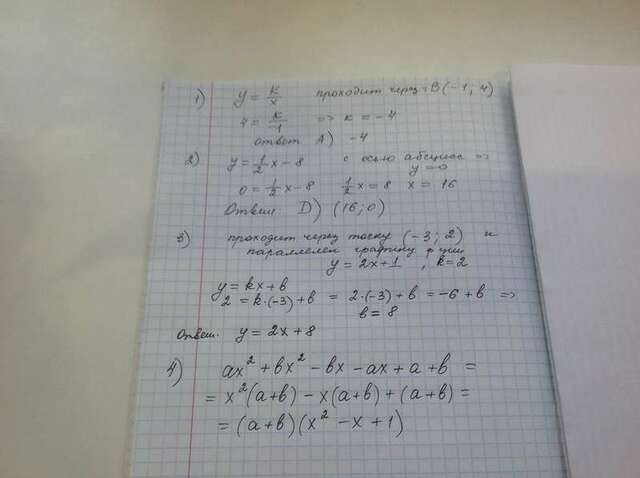 1) y = k/x проходит через B(-1; 4)
4 = k/-1 => k = -4
ответ A) -4
2) y = 1/2 x - 8 с осью абсцисс =>
y = 0
0 = 1/2 x - 8 1/2 x = 8 x = 16
Ответ: D) (16; 0)
3) проходит через точку (-3; 2) и
параллелен графику ф-ции
y = 2x + 1, k = 2
y = kx + b
2 = k·(-3) + b = 2·(-3) + b = -6 + b =>
b = 8
Ответ. y = 2x + 8
4) ax² + bx² - bx - ax + a + b =
= x²(a+b) - x(a+b) + (a+b) =
= (a+b)(x² - x + 1)